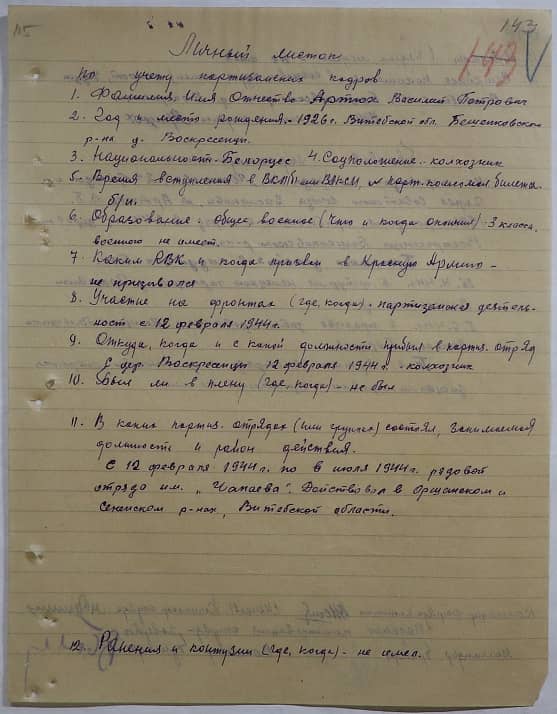 115
143
Личный листок
по учету партизанских кадров
1. Фамилия Имя Отчество Артюх Василий Петрович
2. Год и место рождения - 1926 г. Витебской обл. Бешенковском
р-на д. Воскресенци.
3. Национальность - Белорус 4. Соцположение - колхозник
5. Время вступления в ВКП(б) или ВЛКСМ, № парт. комсомол билета.
б/п.
6. Образование: общее, военное (Что и когда окончил) - 3 класса,
военого не имеет.
7. Каким РВК и когда призван в Красную Армию -
не призывался
8. Участие на фронтах (где, когда) - партизанская деятель-
ность с 12 февраля 1944 г.
9. Откуда, когда и с какой должности прибыл в партиз. отряд
С дер. Воскресенци 12 февраля 1944 г. - колхозник
10. Был ли в плену (где, когда) - не был
11. В каких партиз. отрядах (или группах) состоял, занимаемая
должность и район действия.
С 12 февраля 1944 г. по 6 июля 1944 г. рядовой
отряда им. „Чапаева". Действовал в Оршанском и
Сененском р-нах, Витебской области.
12. Ранения и контузии (где, когда) - не имел.